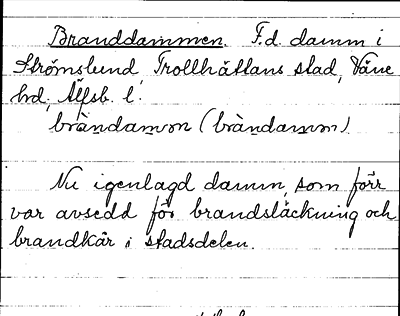 Branddammen. F.d. damm i
Strömslund, Trollhättans stad, Väne
hd, Älfsb. l.
bràndamən (bràndamm)
Nu igenlagd damm, som förr
var avsedd för brandsläckning och
brandkår i stadsdelen.